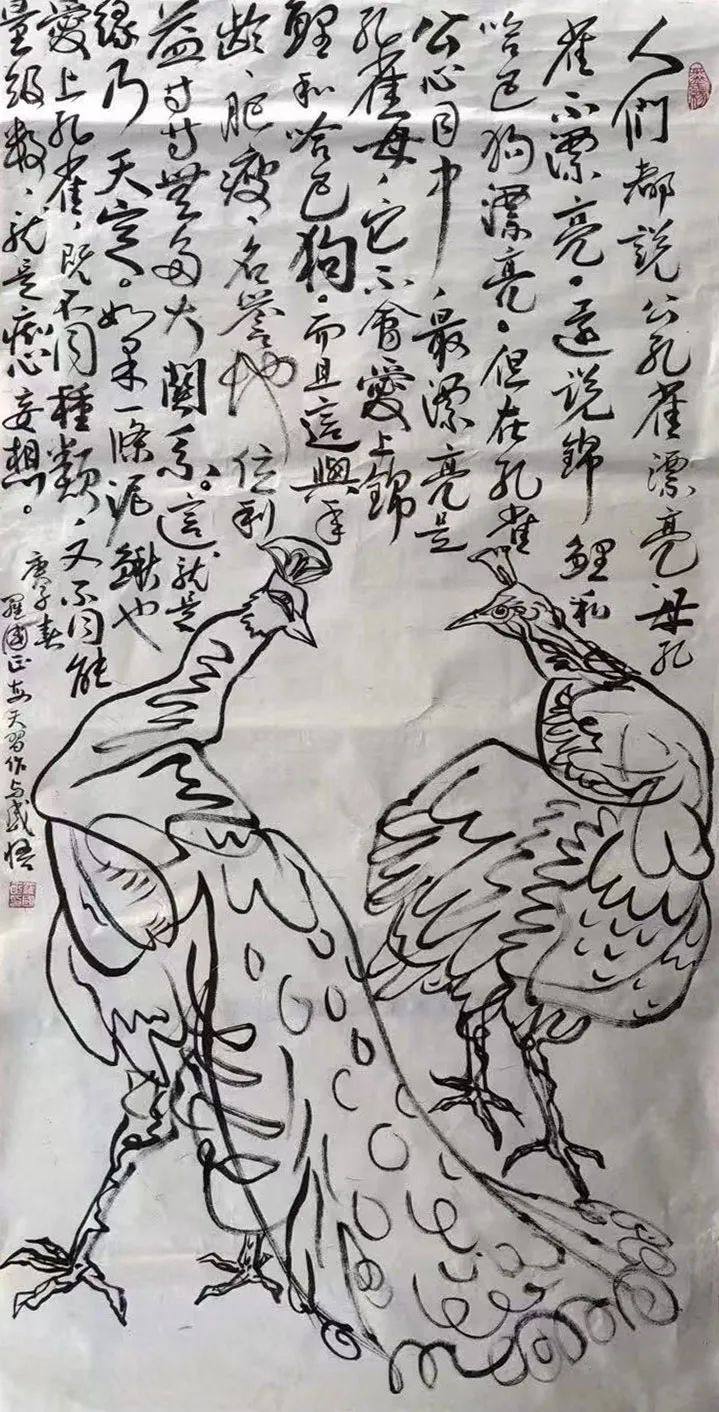 人們都説公孔雀漂亮，母孔
雀不漂亮。還説錦鯉和
哈巴狗漂亮。但在孔雀
公心目中，最漂亮是
孔雀母，它不會愛上錦
鯉和哈巴狗。而且這與年
龄、肥瘦、名譽地位利
益等等無多大關系。這就是
緣乃天定。如果一條泥鰍也
愛上孔雀，既不同種類，又不同能
量级数，就是痴心妄想。
庚子春
羅國正安天習作与感悟